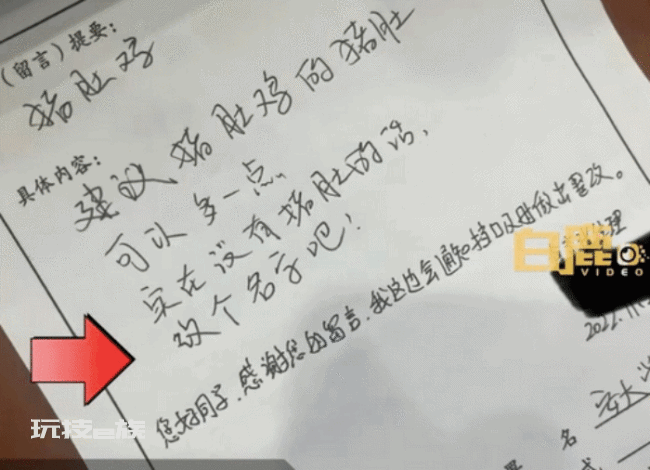 (留言)提要:
猪肚鸡
具体内容:
建议猪肚鸡的猪肚
可以多一点
实在没有猪肚的话,
改个名字吧!
您好同学,感谢您的留言,我这边会通知档口及时做出整改。
经理
2022.11
名
白鹿
VIDEO
玩技e族